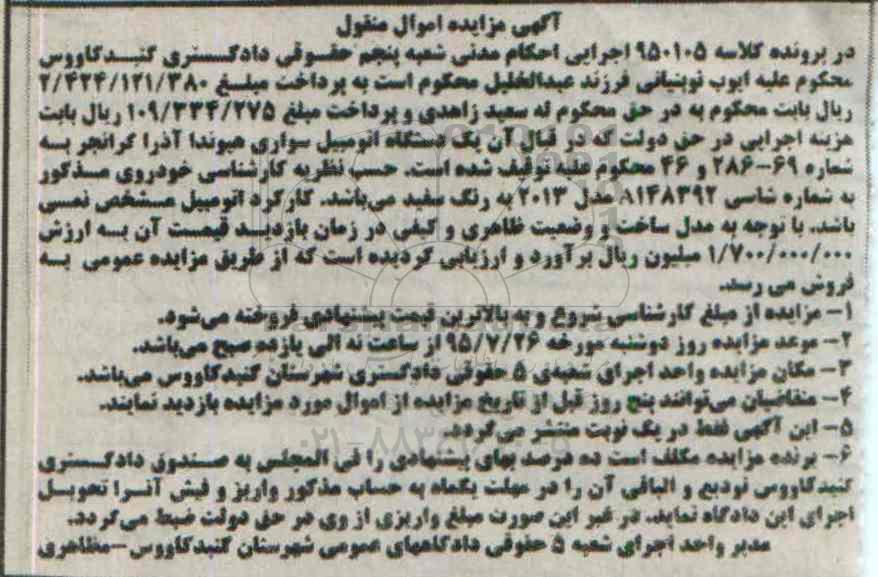 آگهی مزایده اموال منقول
در پرونده کلاسه ۹۵۰۱۰۵ اجرایی احکام مدنی شعبه پنجم حقوقی دادگستری گنبدکاووس
محکوم علیه ایوب نوبنیانی فرزند عبدالخلیل محکوم است به پرداخت مبلغ ۲/۴۲۴/۱۲۱/۳۸۰
ریال بابت محکوم به در حق محکوم له سعید زاهدی و پرداخت مبلغ ۱۰۹/۳۳۴/۲۷۵ ریال بابت
هزینه اجرایی در حق دولت که در قبال آن یک دستگاه اتومبیل سواری هیوندا آذرا گرانجر به
شماره ۶۹-۲۸۶ و ۴۶ محکوم علیه توقیف شده است. حسب نظریه کارشناسی خودروی مذکور
به شماره شاسی A۱۴۸۳۹۲ مدل ۲۰۱۳ به رنگ سفید می‌باشد. کارکرد اتومبیل مشخص نمی
باشد. با توجه به مدل ساخت و وضعیت ظاهری و کیفی در زمان بازدید قیمت آن به ارزش
۱/۷۰۰/۰۰۰/۰۰۰ میلیون ریال برآورد و ارزیابی گردیده است که از طریق مزایده عمومی به
فروش می رسد.
۱- مزایده از مبلغ کارشناسی شروع و به بالاترین قیمت پیشنهادی فروخته می‌شود.
۲- موعد مزایده روز دوشنبه مورخه ۹۵/۷/۲۶ از ساعت نه الی یازده صبح می‌باشد.
۳- مکان مزایده واحد اجرای شعبه‌ی ۵ حقوقی دادگستری شهرستان گنبدکاووس می‌باشد.
۴- متقاضیان می‌توانند پنج روز قبل از تاریخ مزایده از اموال مورد مزایده بازدید نمایند.
۵- این آگهی فقط در یک نوبت منتشر می‌گردد.
۶- برنده مزایده مکلف است ده درصد بهای پیشنهادی را فی المجلس به صندوق دادگستری
گنبدکاووس تودیع و الباقی آن را در مهلت یکماه به حساب مذکور واریز و فیش آنرا تحویل
اجرای این دادگاه نماید. در غیر این صورت مبلغ واریزی از وی در حق دولت ضبط می‌گردد.
مدیر واحد اجرای شعبه ۵ حقوقی دادگاههای عمومی شهرستان گنبدکاووس-مظاهری